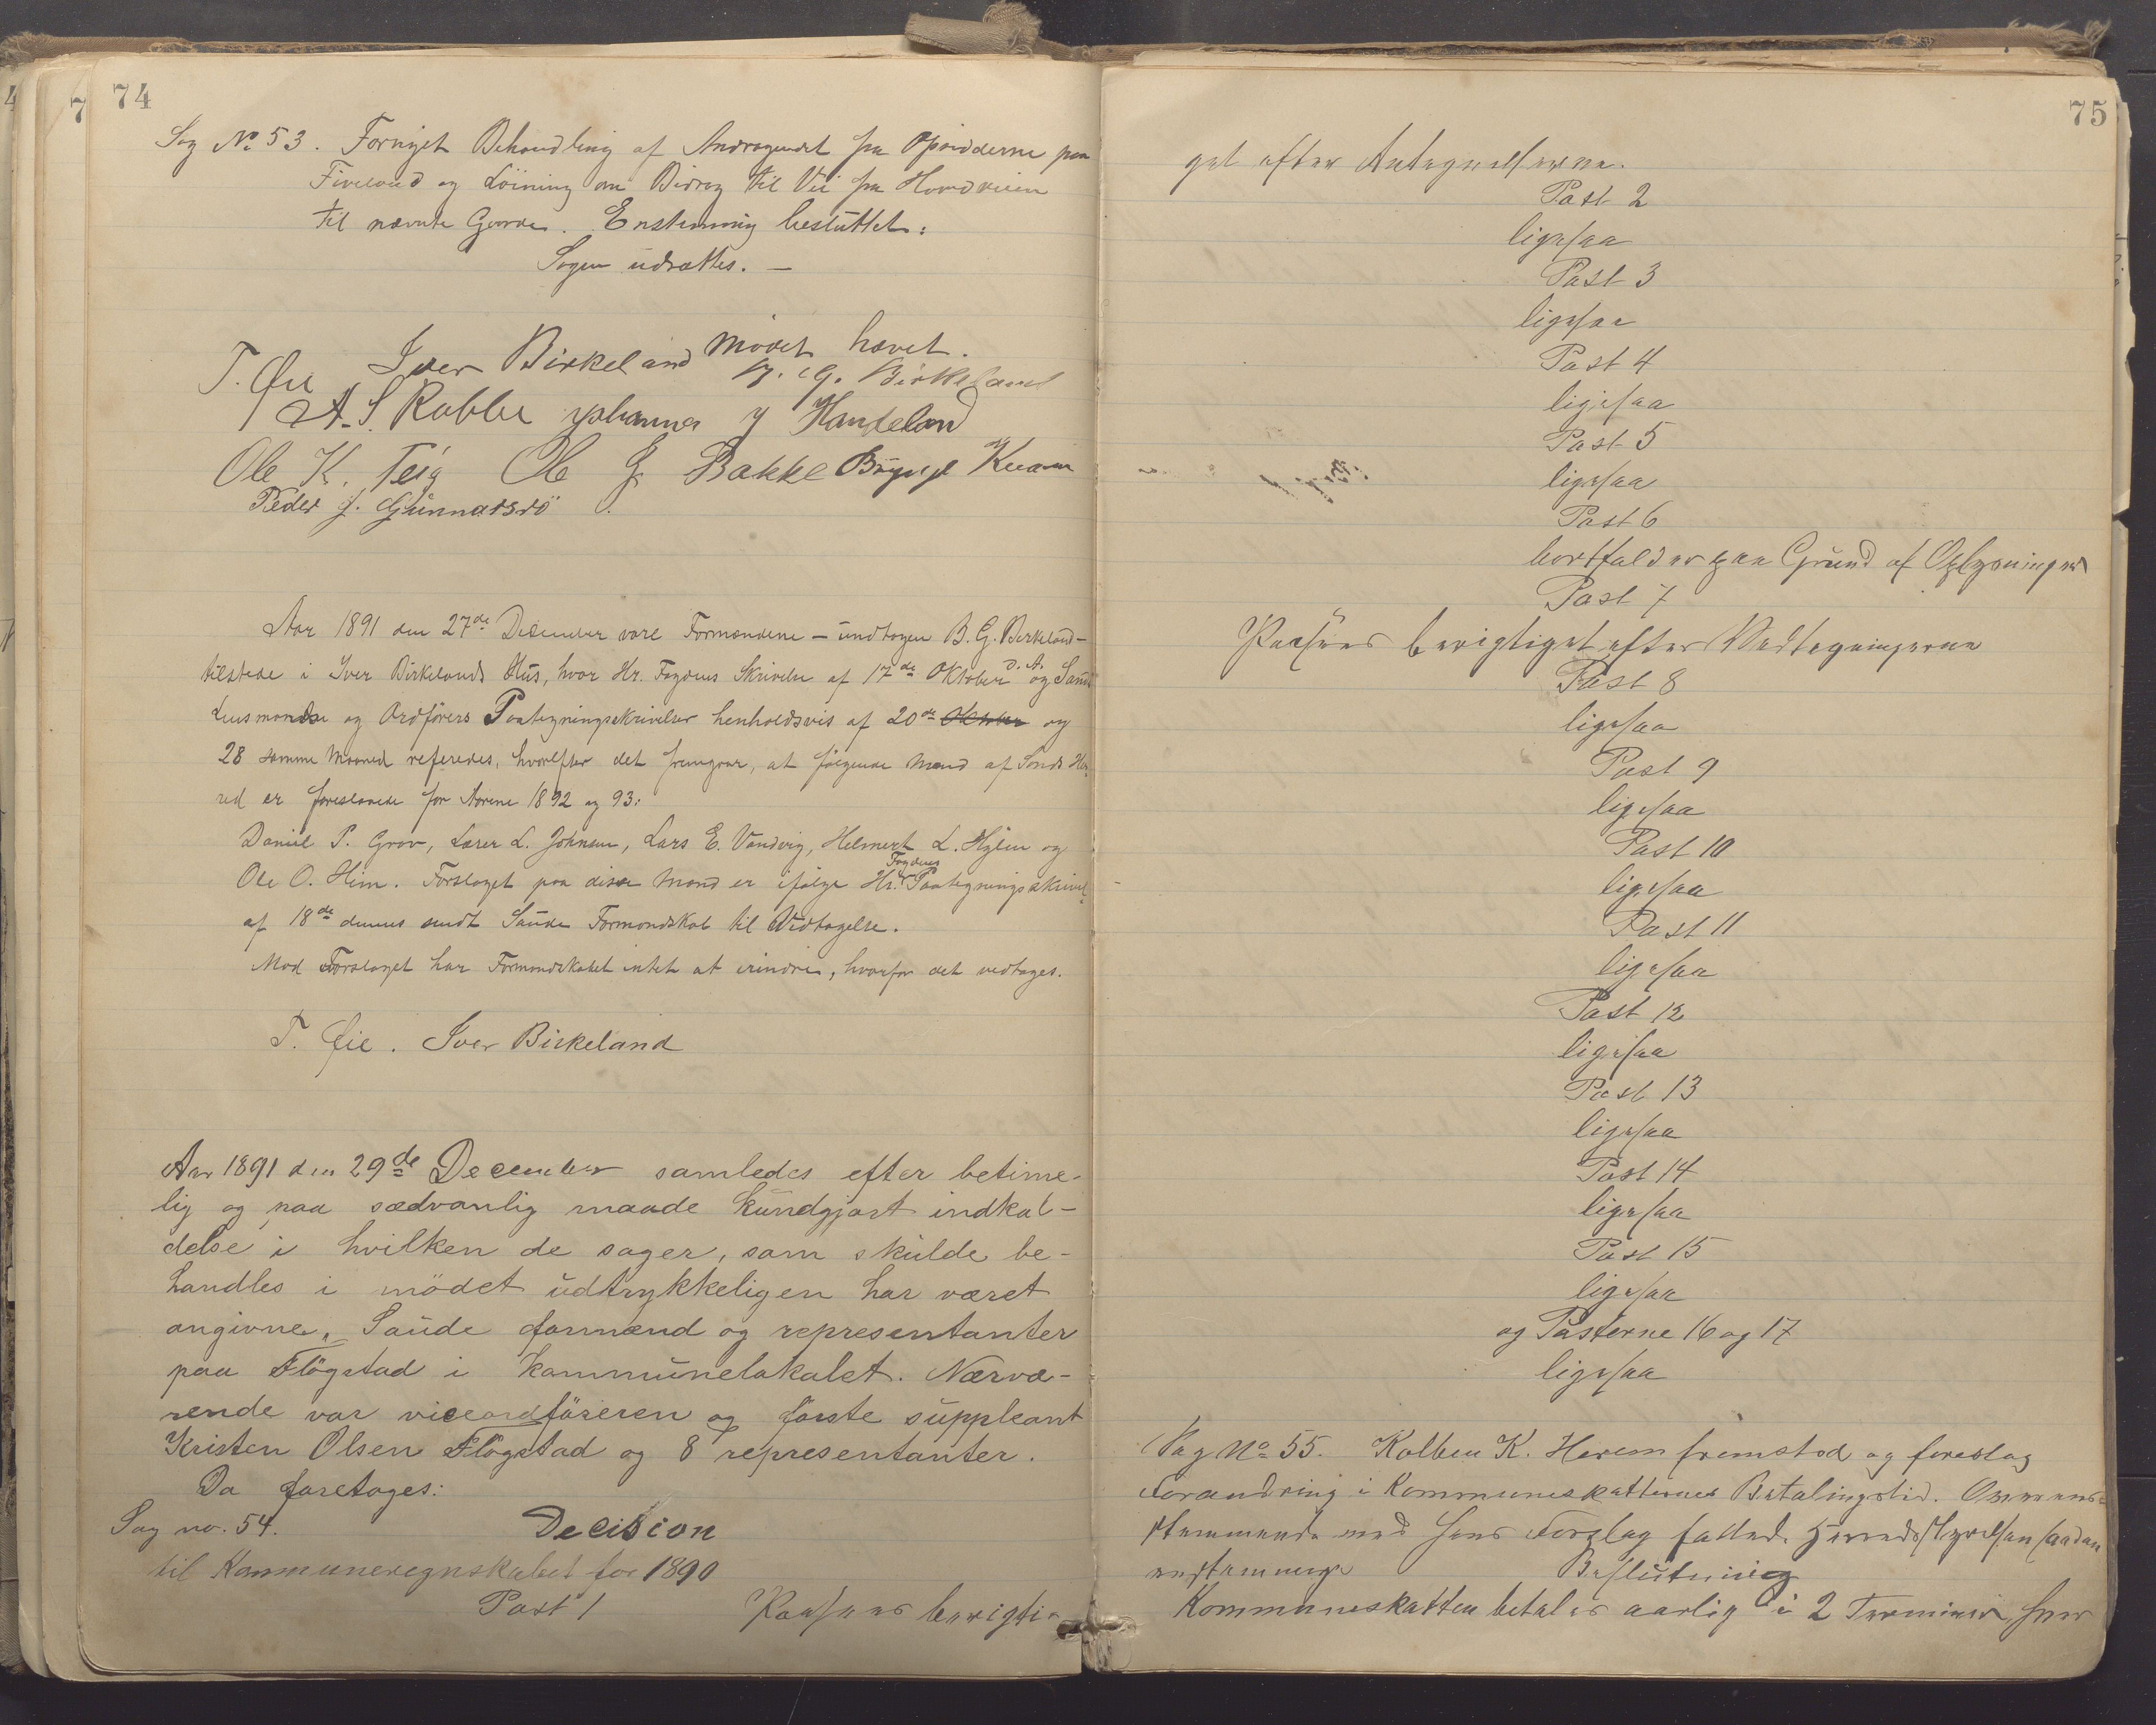 74
Sag No 53. Fornyet Behandling af Andragendet fra Opsidderne paa
Fiveland og Löining om Bidrag til Vei fra Hovedveien
til nævnte Gaarde. Enstemmig besluttet:
Sagen udsættes. —
Mödet hævet.
T. Øie Iver Birkeland B. G. Birkeland
A. S. Rabbe Johannes J Handeland
Ole K. Teig Ole G Bakke Brynjel Kvam
Peder J. Gunnarsrö
Aar 1891 den 27de December vare Formændene — undtagen B. G. Birkeland —
tilstede i Iver Birkelands Hus, hvor Hr. Fogdens Skrivelse af 17de Oktober D. A. og Sands
Lensmands og Ordförers Paategningsskrivelser henholdsvis af 20de Oktober og
28 samme Maaned referedes, hvorefter det fremgaar, at fölgende Mænd af Sands Her-
red er foreslaaede for Aarene 1892 og 93:
Daniel P. Grov, Lærer L. Johnsen, Lars E. Vandvig, Helmert L. Hylen og
Ole O. Heim. Forslaget paa disse Mænd er ifölge Hr. Fogdens Paategningsskrivel
af 18de dennes sendt Saude Formandskab til Vedtagelse.
Mod Forslaget har Formandskabet intet at erindre, hvorfor det vedtages.
T. Øie. Iver Birkeland
Aar 1891 den 29de December samledes efter betime-
lig og paa sædvanlig maade kundgjort indkal-
delse i hvilken de sager, som skulde be-
handles i mödet udtrykkeligen har været
angivne, Saude formænd og representanter
paa Flögstad i kommunelokalet. Nærvæ-
rende var viceordföreren og förste suppleant
Kristen Olsen Flögstad og 8 representanter.
Da foretoges:
Sag no. 54. Decision
til Kommuneregnskabet for 1890
Post 1 Passeres berigti-
75
get efter Antegnelserne.
Post 2
ligesaa
Post 3
ligesaa
Post 4
ligesaa
Post 5
ligesaa
Post 6
bortfalder paa Grund af Oplysninger
Post 7
Passeres berigtiget efter Vedtegningerne
Post 8
ligesaa
Post 9
ligesaa
Post 10
ligesaa
Post 11
ligesaa
Post 12
ligesaa
Post 13
ligesaa
Post 14
ligesaa
Post 15
ligesaa
og Posterne 16 og 17
ligesaa
Sag No 55. Kolben K. Herem fremstod og foreslog
Forandring i Kommuneskatternes Betalingstid. Overens-
stemmende med hans Forslag fattede Herredsstyrelsen saadan
enstemmige Beslutning
Kommuneskatten betales aarlig i 2 Terminer, hver